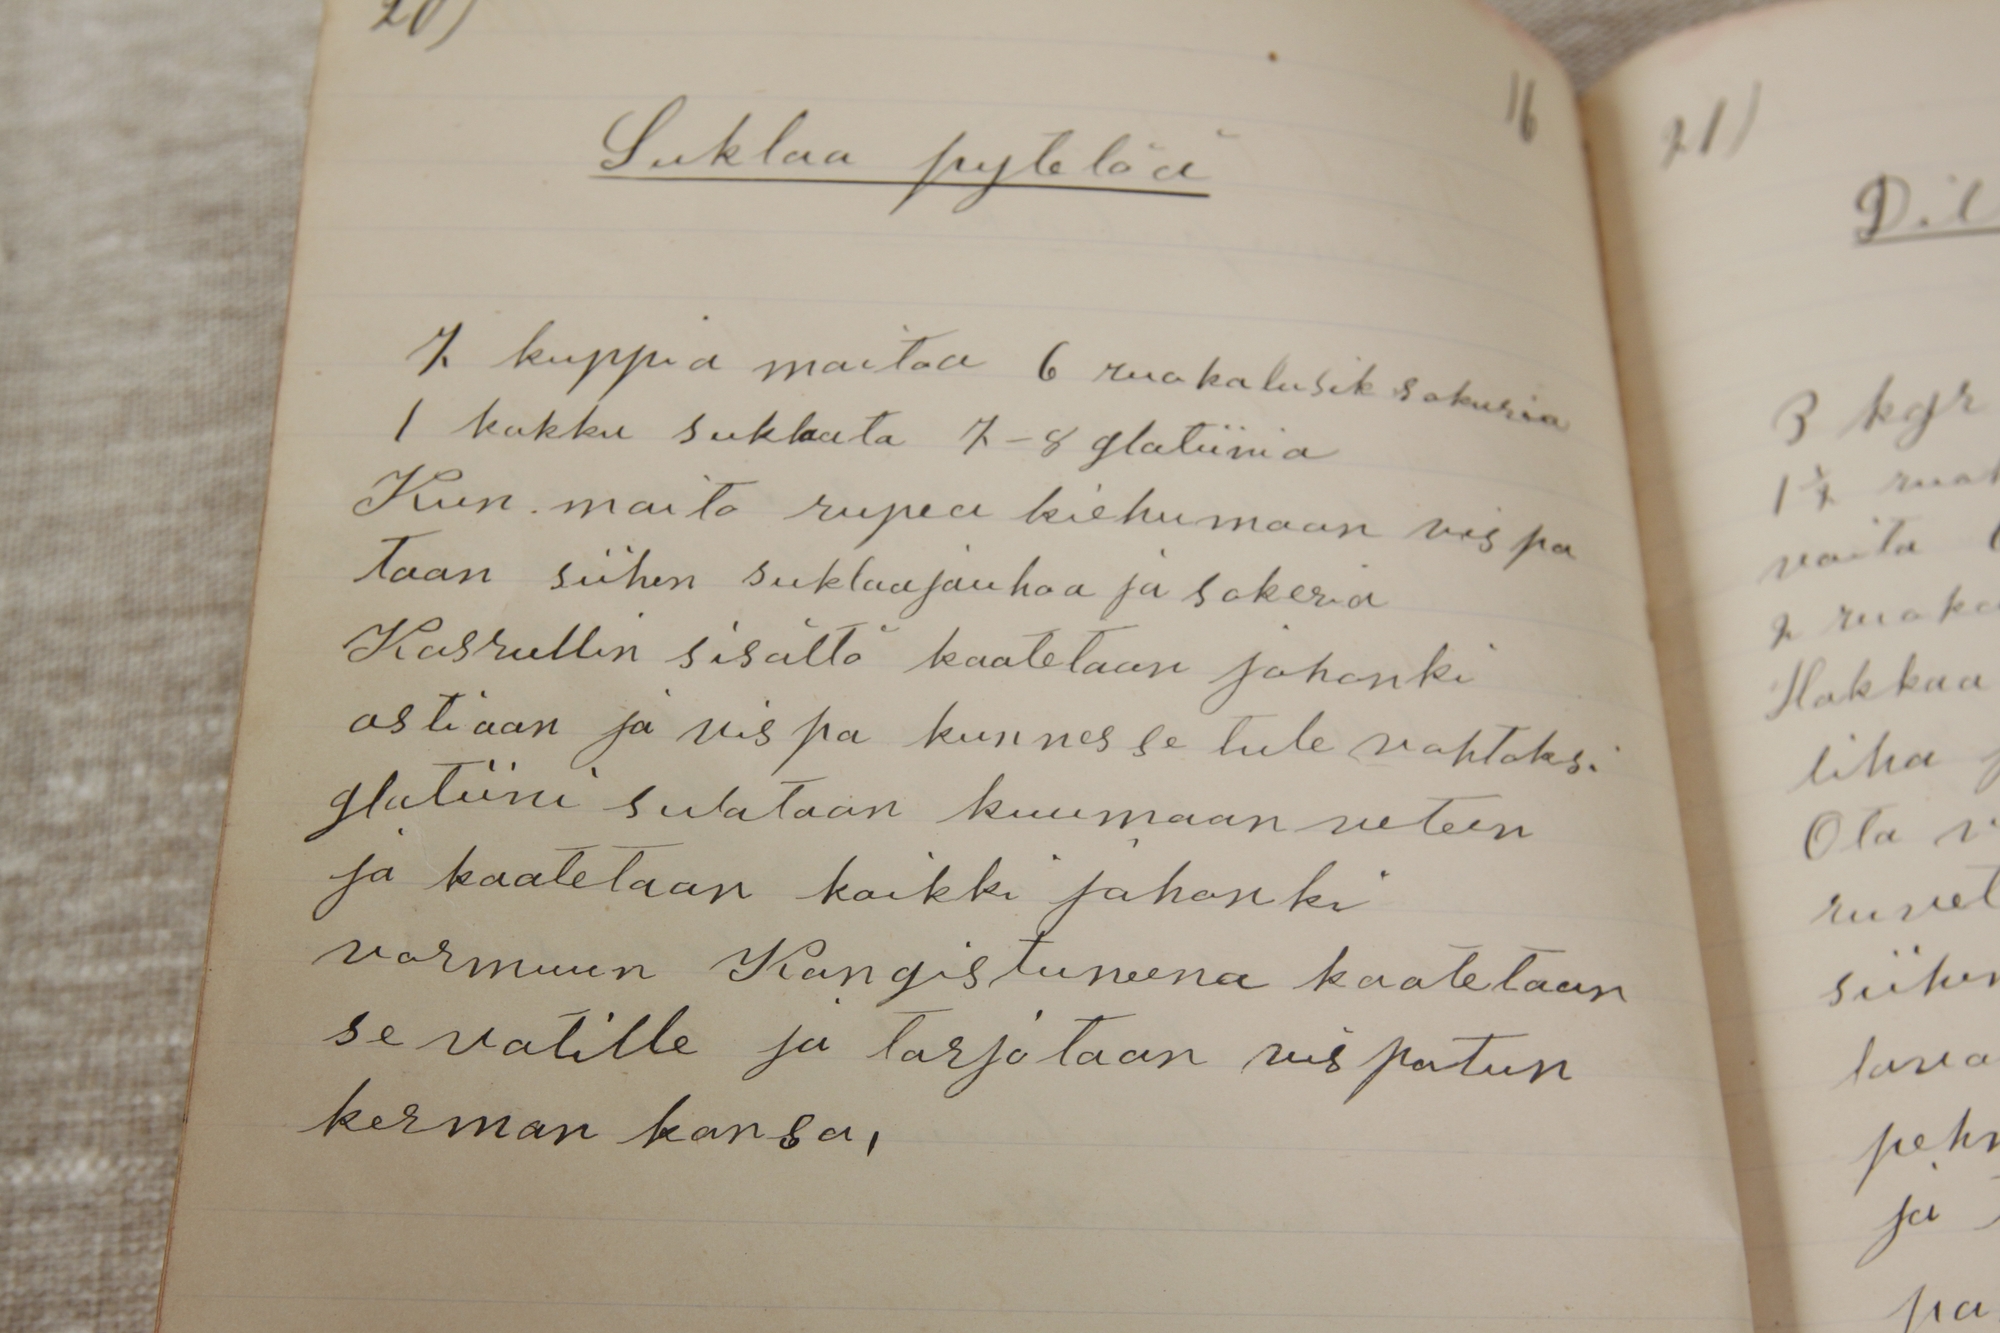 20)
16
Suklaa pytelöä
7 kuppia maitoa 6 ruokalusik sokuria
1 kakku suklaata 7-8 glatiinia
Kun maito rupea kiehumaan vispa
taan siihen suklaajauhoa ja sokeria
Kasrullin sisältö kaatetaan johonki
astiaan ja vispa kunnes se tule vahtoksi
glatiini sulataan kuumaan veteen
ja kaatetaan kaikki johonki
vormuun Kangistuneena kaatetaan
se vatille ja tarjotaan vispatun
kerman kansa,
21)
3 kgr
vaita
Hakkaa
liha
Ota
siihen
ja